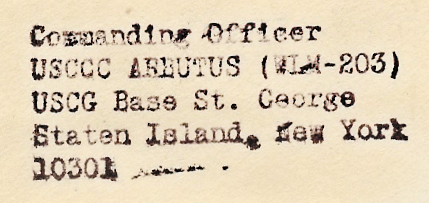 Commanding Officer
USCGC ARBUTUS (WLM-203)
USCG Base St. George
Staten Island, New York
10301